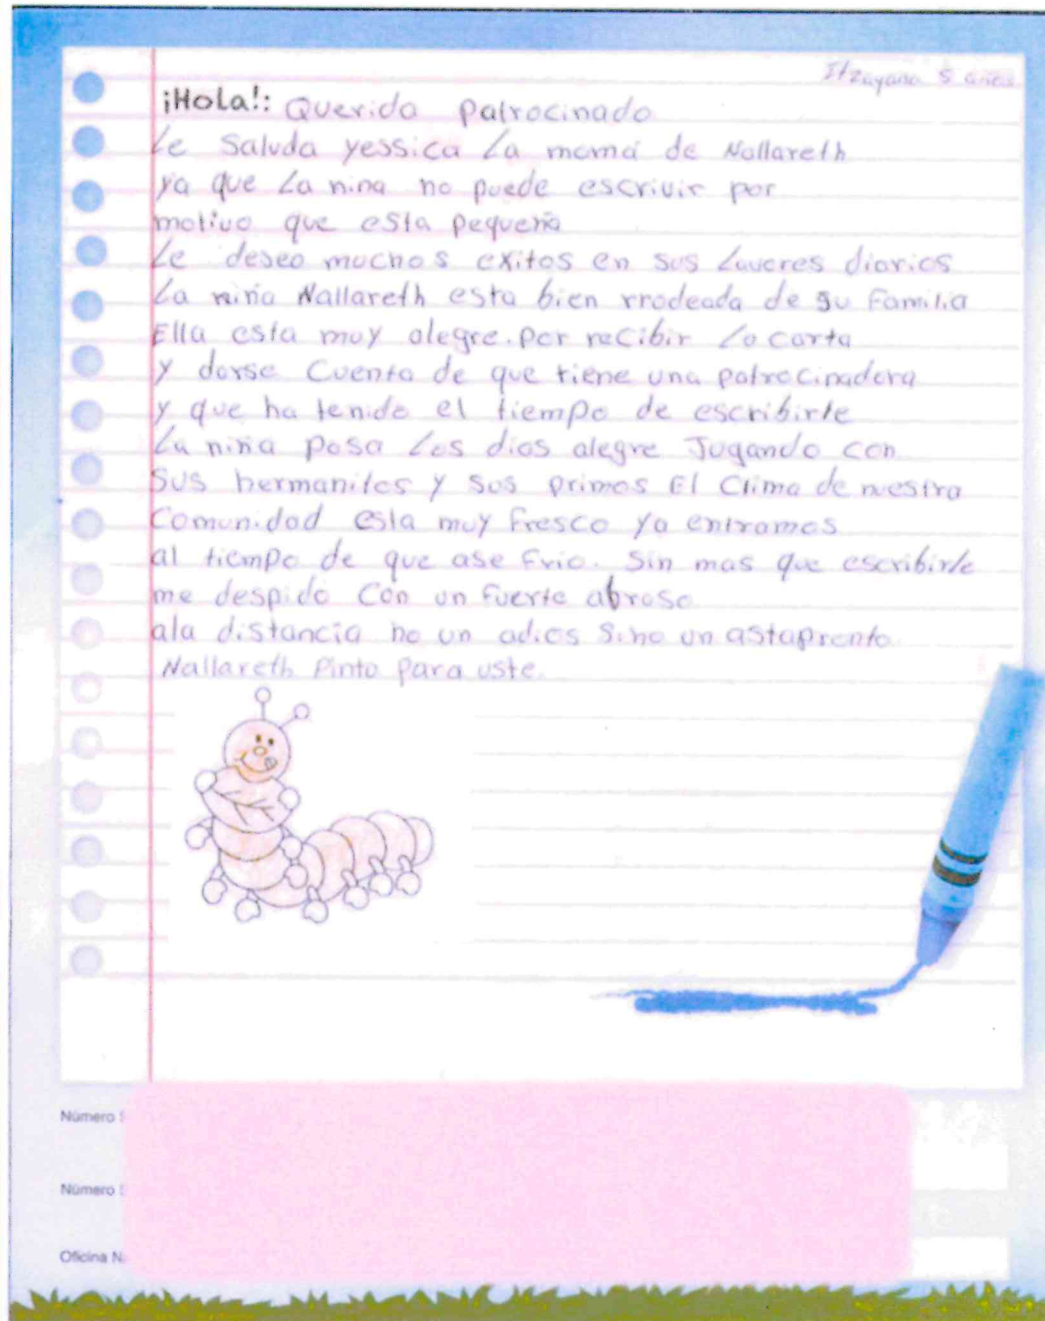 Itzayana 5 años
¡Hola!: Querida Patrocinado
Le Saluda yessica La mamá de Nallareth
ya que La nina no puede escrivir por
motivo que esta pequeña
Le deseo muchos exitos en sus Laveres diarios
La niña Nallareth esta bien rrodeada de su Familia
Ella esta muy alegre. por recibir La carta
y darse Cuenta de que tiene una patrocinadora
y que ha tenido el tiempo de escribirle
La niña pasa Los dias alegre Jugando con
Sus hermanitos y sus primos El Clima de nuestra
Comunidad esta muy Fresco ya entramos
al tiempo de que ase Frio. Sin mas que escribirle
me despido Con un fuerte abraso
ala distancia no un adios Sino un astapronto.
Nallareth Pinto Para uste.
Número S
Número S
Oficina N